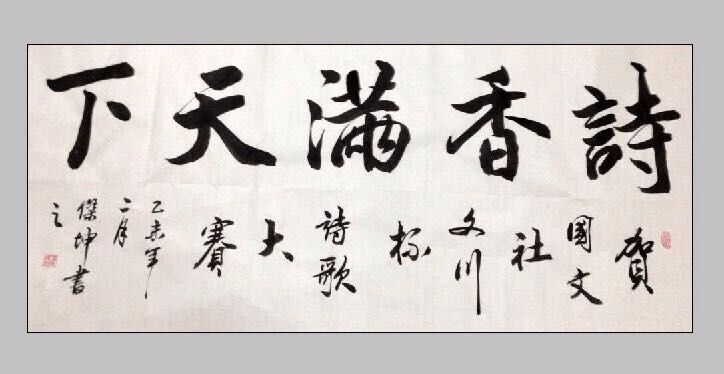 詩香滿天下
賀
國文
社
文川
杯
詩歌
大
賽
乙未年
二月
傑坤書
之